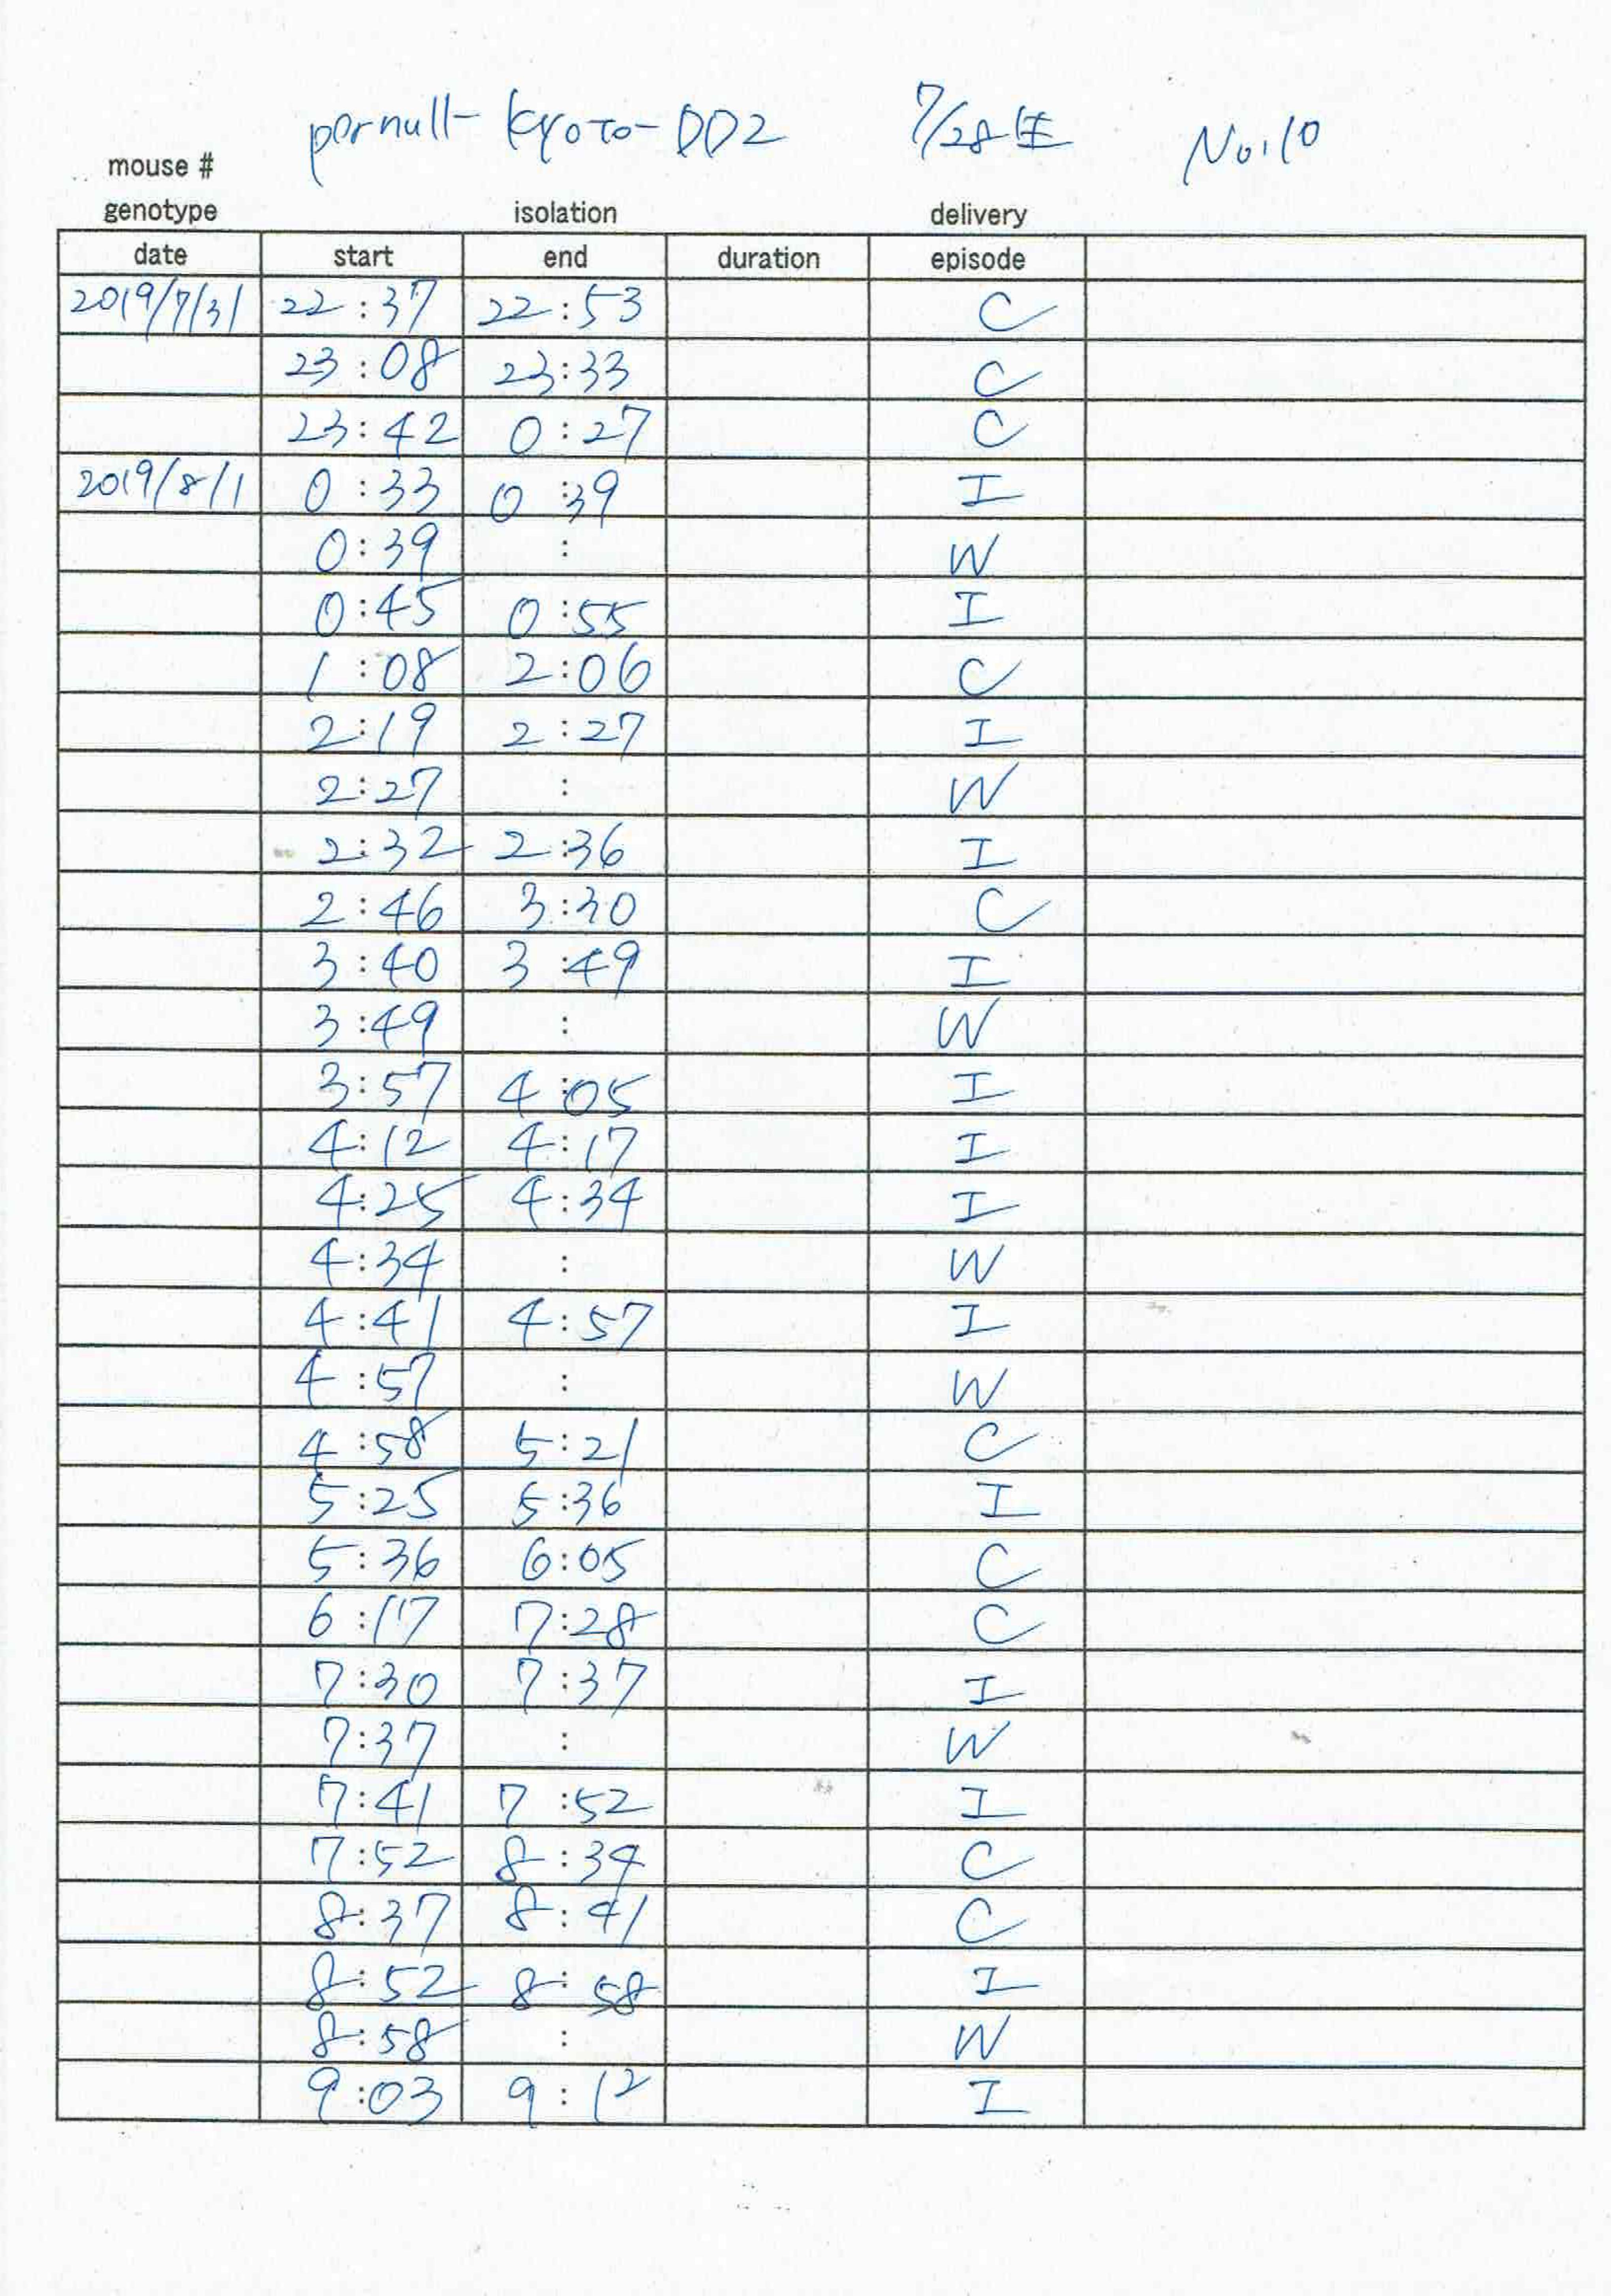 pernull- Kyoto-DD2 7/28生 No.10
mouse #
genotype isolation delivery
date start end duration episode
2019/7/31 22:37 22:53 C
23:08 23:33 C
23:42 0:27 C
2019/8/1 0:33 0:39 I
0:39 : W
0:45 0:55 I
1:08 2:06 C
2:19 2:27 I
2:27 : W
2:32 2:36 I
2:46 3:30 C
3:40 3:49 I
3:49 : W
3:57 4:05 I
4:12 4:17 I
4:25 4:34 I
4:34 : W
4:41 4:57 I
4:57 : W
4:58 5:21 C
5:25 5:36 I
5:36 6:05 C
6:17 7:28 C
7:30 7:37 I
7:37 : W
7:41 7:52 I
7:52 8:34 C
8:37 8:41 C
8:52 8:58 I
8:58 : W
9:03 9:12 I